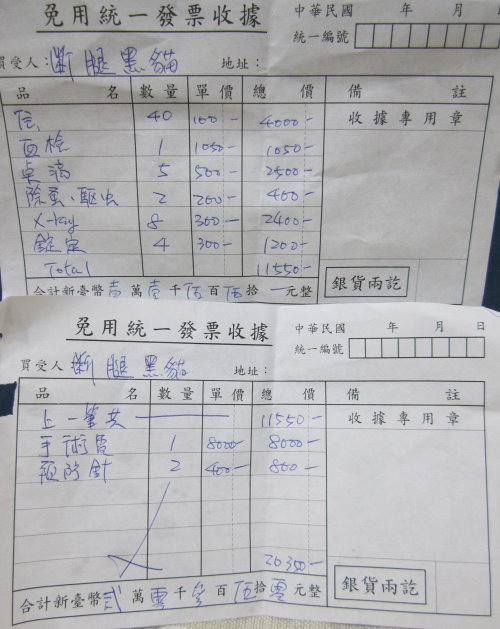 免用統一發票收據
中華民國 年 月
統一編號
買受人：斷腿黑貓 地址：
品名 數量 單價 總價 備註
住 40 100- 4000-
收據專用章
血檢 1 1050- 1050-
点滴 5 500- 2500-
除蚤、驅虫 2 200- 400-
X-ray 8 300- 2400-
錠定 4 300- 1200-
Total 11550-
合計新臺幣壹萬壹千伍百伍拾 元整
銀貨兩訖
免用統一發票收據
中華民國 年 月 日
統一編號
買受人：斷腿黑貓 地址：
品名 數量 單價 總價 備註
上一筆共 11550-
收據專用章
手術費 1 8000- 8000-
預防針 2 400- 800-
20350-
合計新臺幣貳萬零千參百伍拾零元整
銀貨兩訖